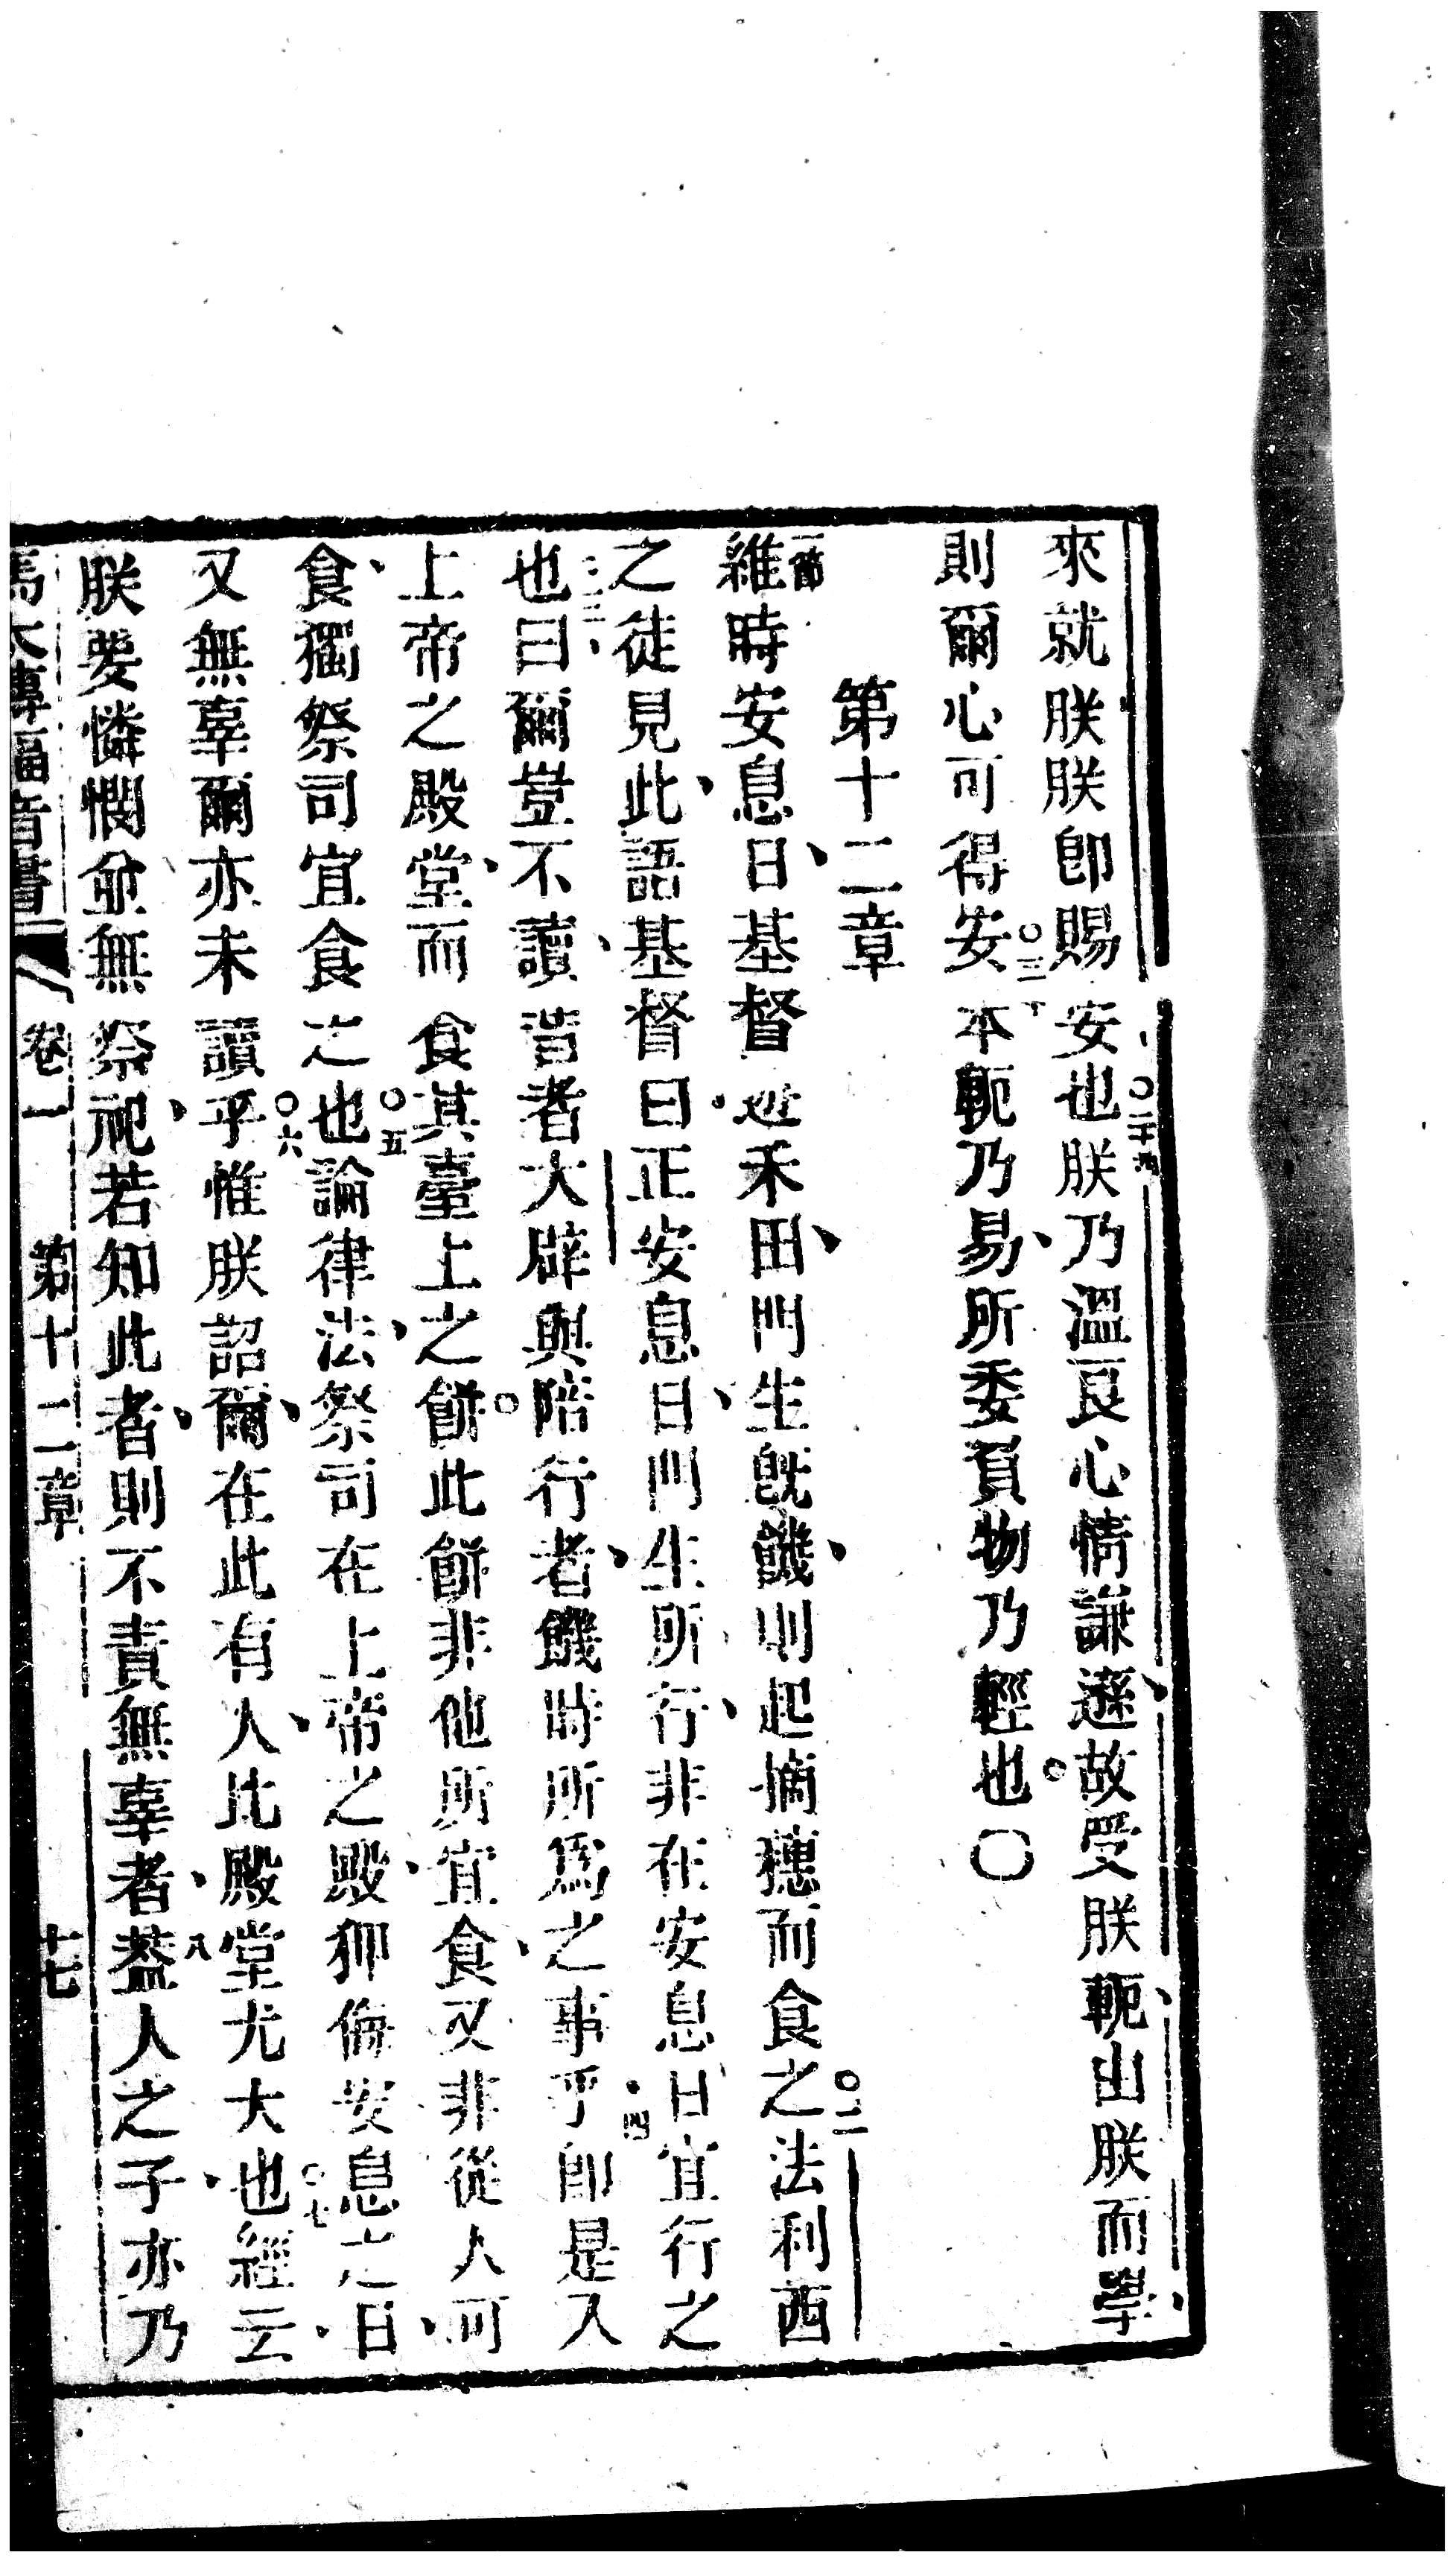 來就朕朕卽賜安也〇二十九朕乃溫良心情謙遜、故受朕軛、出朕而學、
則爾心可得安〇三十本軛乃易、所委負物乃輕也〇
第十二章
一節維時安息日、基督過禾田、門生旣饑、則起摘穗而食之〇二法利西
之徒見此、語基督曰、正安息日、門生所行、非在安息日宜行之
也〇三曰、爾豈不讀、昔者大辟與陪行者、饑時所爲之事乎四卽是入
上帝之殿堂、而食其臺上之餠〇此餠非他所宜食、又非從人可
食、獨祭司宜食之也〇五論律法、祭司在上帝之殿、狎侮安息之日、
又無辜、爾亦未讀乎〇六惟朕詔爾、在此有人、比殿堂尤大也〇七經云、
朕要憐憫、並無祭祀、若知此者、則不責無辜者、八蓋人之子、亦乃
馬太傳福音書 卷一 第十二章 十七